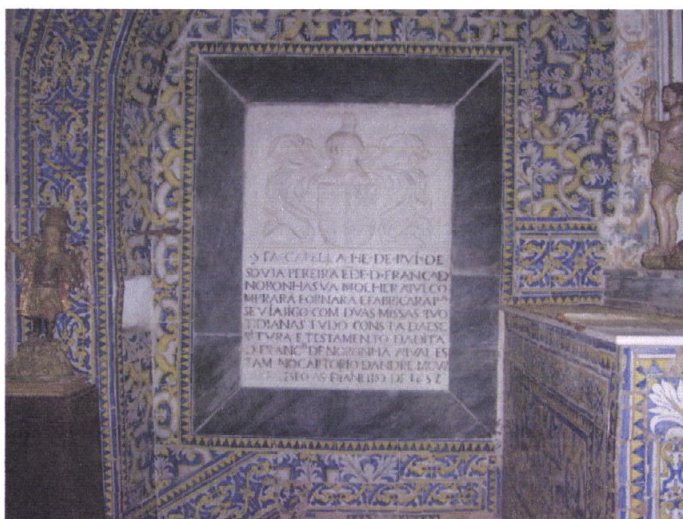 CAPELLA HE DE RVI DE
SOVIA PEREIRA E DE D FRANCA D
NORONHA SVA MOLHER AQVL CO
MPRARA FORNARA E FABRICARA Pª
SEV IASIGO COM DVAS MISSAS QVO
TIDIANAS TVDO CONSTA DA ESC
TVRA E TESTAMENTO DA DITA
D FRANCª DE NORONHA AQVAL ES
TAM NO CARTORIO DANDRE MOVR
DE IANEIRO DE 1632